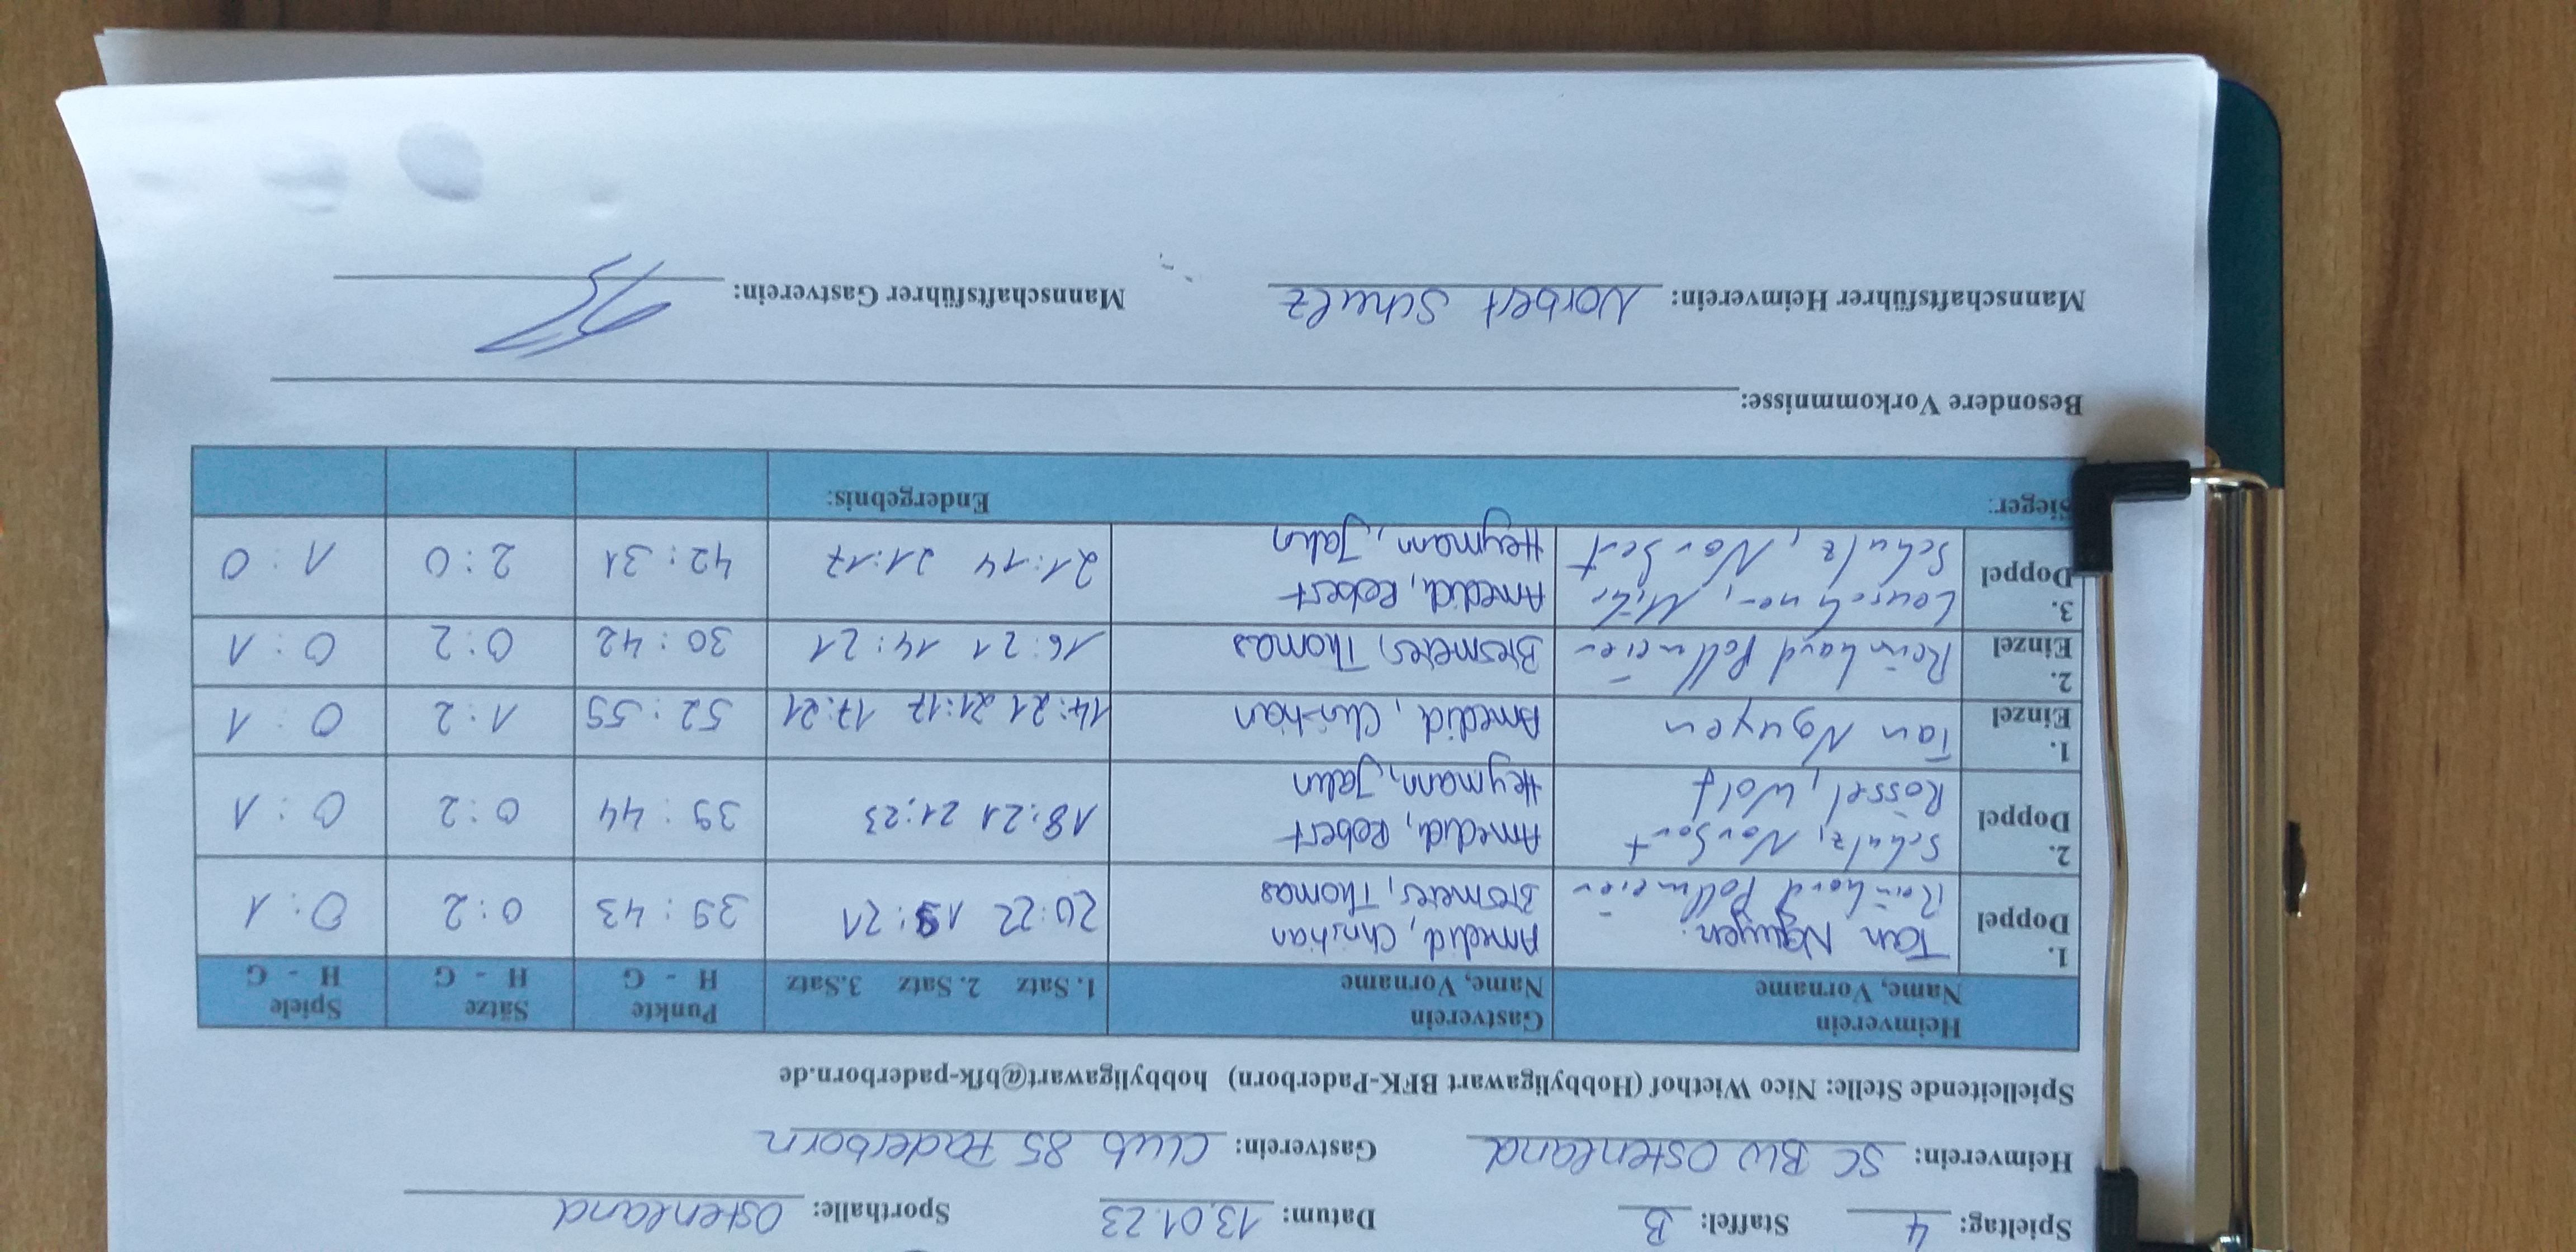 Spieltag: 4 Staffel: B Datum: 13.01.23 Sporthalle: Ostenland
Heimverein: SC BW Ostenland Gastverein: Club 85 Paderborn
Spielleitende Stelle: Nico Wiethof (Hobbyligawart BFK-Paderborn) hobbyligawart@bfk-paderborn.de
Heimverein Gastverein Punkte Sätze Spiele
Name, Vorname Name, Vorname 1. Satz 2. Satz 3.Satz H - G H - G H - G
1. Tan Nguyen Amedid, Christian
Doppel Reinhard Pollmeier Bromeres, Thomas 20:22 19:21 39:43 0:2 0:1
2. Schulz, Norbert Amedid, Robert
Doppel Rössel, Wolf Heymann, Jalin 18:21 21:23 39:44 0:2 0:1
1.
Einzel Tan Nguyen Amedid, Christian 14:21 21:17 17:21 52:59 1:2 0:1
2.
Einzel Reinhard Pollmeier Bromeres, Thomas 16:21 14:21 30:42 0:2 0:1
3. Amedid, Robert
Doppel Schulz, Norbert Heymann, Jalin 21:14 21:17 42:31 2:0 1:0
Sieger: Endergebnis:
Besondere Vorkommnisse:
Mannschaftsführer Heimverein: Norbert Schulz Mannschaftsführer Gastverein: